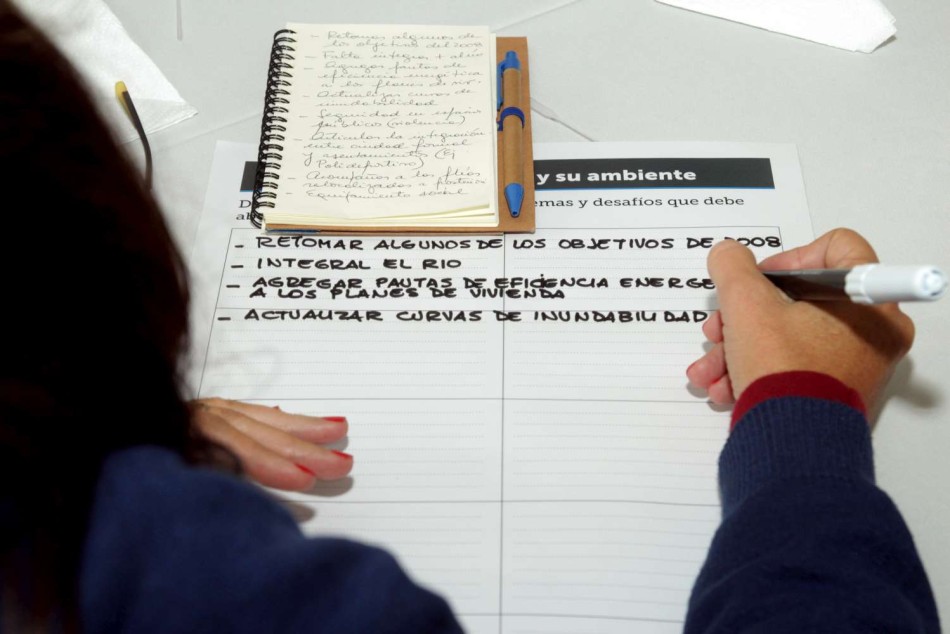 - Retomar algunos de
los objetivos del 2008
- Falta integrar
- Agregar pautas de
eficiencia
a los planes de viv.
- Actualizar curvas de
inundabilidad
- Seguridad en espacios
públicos (violencia)
- Articular la integración
entre ciudad formal
y asentamientos (Ej
Polideportivo)
- a los
relocalizados a posteriori
- Equipamiento social
y su ambiente
emas y desafíos que debe
- RETOMAR ALGUNOS DE LOS OBJETIVOS DE 2008
- INTEGRAL EL RIO
- AGREGAR PAUTAS DE EFICENCIA ENERGE
A LOS PLANES DE VIVIENDA
- ACTUALIZAR CURVAS DE INUNDABILIDAD